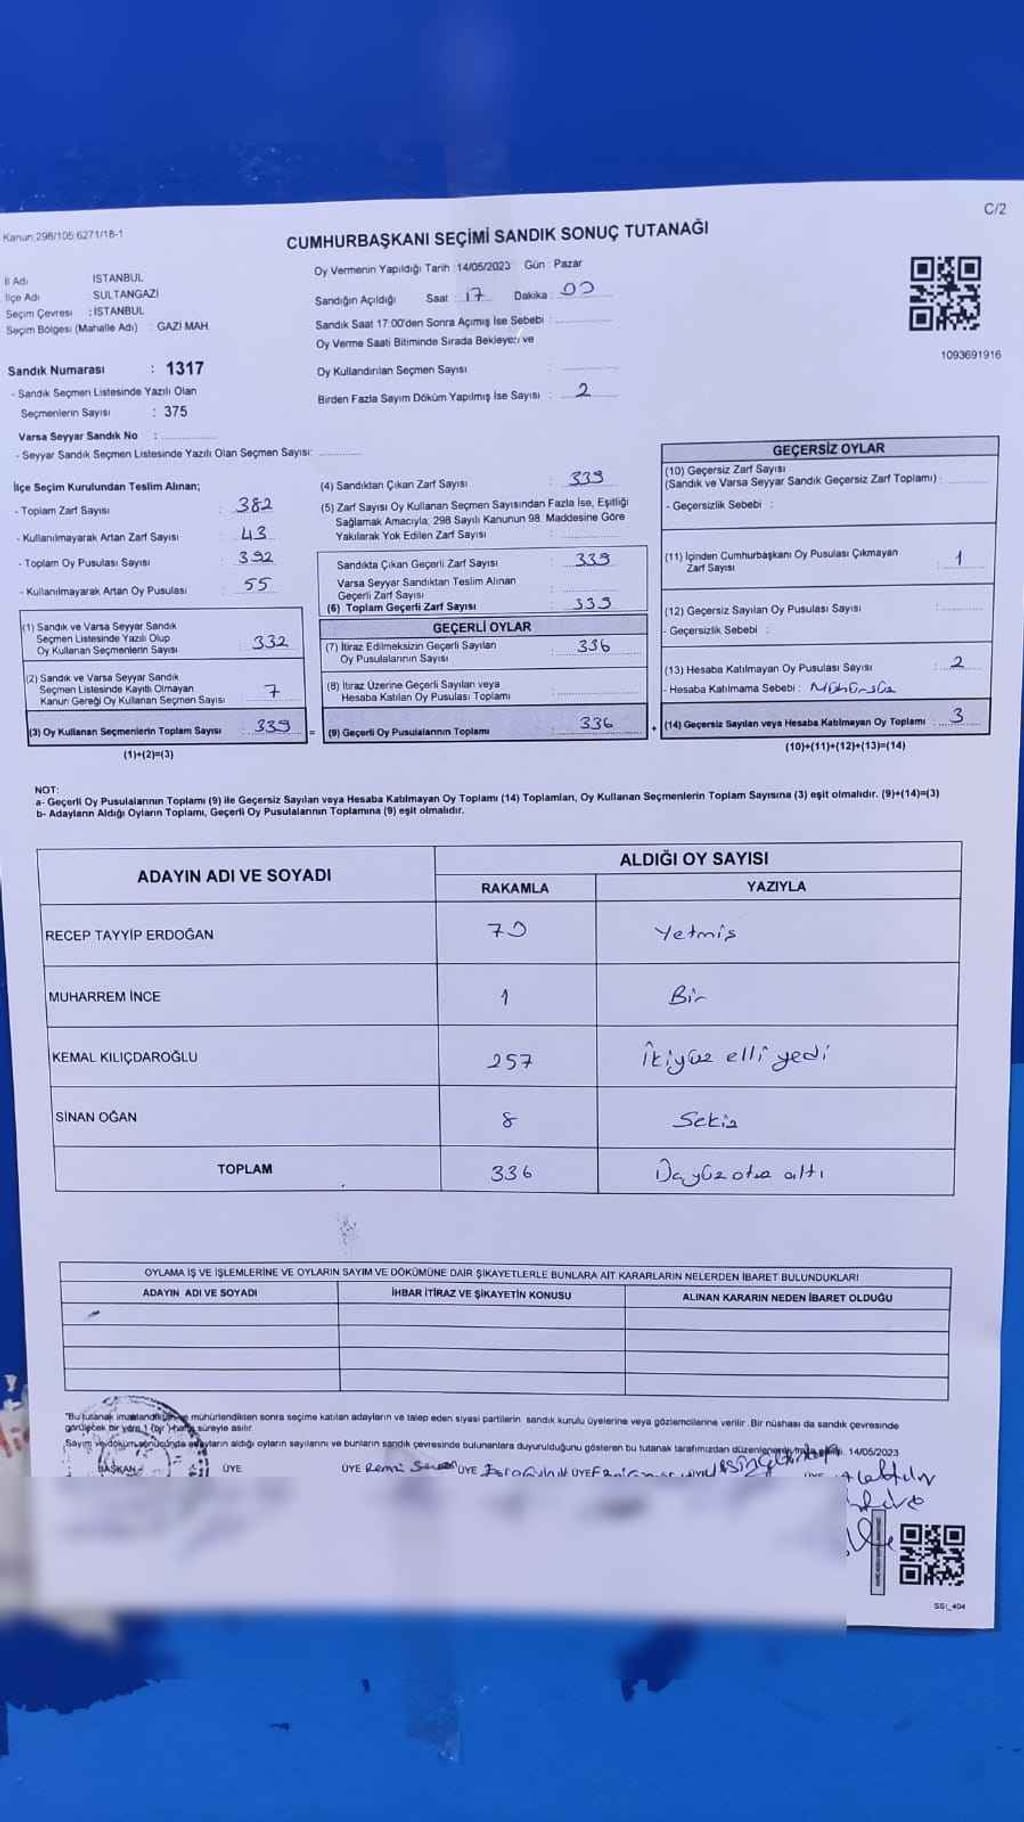 C/2
Kanun:298/105;6271/18-1
CUMHURBAŞKANI SEÇİMİ SANDIK SONUÇ TUTANAĞI
İl Adı İSTANBUL
İlçe Adı SULTANGAZİ
Seçim Çevresi : İSTANBUL
Seçim Bölgesi (Mahalle Adı) : GAZİ MAH.
Oy Vermenin Yapıldığı Tarih :14/05/2023 Gün : Pazar
Sandığın Açıldığı Saat : 17 Dakika : 00
Sandık Saat 17:00'den Sonra Açılmış İse Sebebi :
Oy Verme Saati Bitiminde Sırada Bekleyen ve
Oy Kullandırılan Seçmen Sayısı :
Birden Fazla Sayım Döküm Yapılmış İse Sayısı : 2
1093691916
Sandık Numarası : 1317
- Sandık Seçmen Listesinde Yazılı Olan
Seçmenlerin Sayısı : 375
Varsa Seyyar Sandık No :
- Seyyar Sandık Seçmen Listesinde Yazılı Olan Seçmen Sayısı:
İlçe Seçim Kurulundan Teslim Alınan;
- Toplam Zarf Sayısı : 382
- Kullanılmayarak Artan Zarf Sayısı : 43
- Toplam Oy Pusulası Sayısı : 392
- Kullanılmayarak Artan Oy Pusulası : 55
(1) Sandık ve Varsa Seyyar Sandık
Seçmen Listesinde Yazılı Olup
Oy Kullanan Seçmenlerin Sayısı : 332
(2) Sandık ve Varsa Seyyar Sandık
Seçmen Listesinde Kayıtlı Olmayan
Kanun Gereği Oy Kullanan Seçmen Sayısı : 7
(3) Oy Kullanan Seçmenlerin Toplam Sayısı : 339
(1)+(2)=(3)
(4) Sandıktan Çıkan Zarf Sayısı : 339
(5) Zarf Sayısı Oy Kullanan Seçmen Sayısından Fazla İse, Eşitliği
Sağlamak Amacıyla; 298 Sayılı Kanunun 98. Maddesine Göre
Yakılarak Yok Edilen Zarf Sayısı :
Sandıkta Çıkan Geçerli Zarf Sayısı : 339
Varsa Seyyar Sandıktan Teslim Alınan
Geçerli Zarf Sayısı :
(6) Toplam Geçerli Zarf Sayısı : 339
GEÇERLİ OYLAR
(7) İtiraz Edilmeksizin Geçerli Sayılan
Oy Pusulalarının Sayısı : 336
(8) İtiraz Üzerine Geçerli Sayılan veya
Hesaba Katılan Oy Pusulası Toplamı :
= (9) Geçerli Oy Pusulalarının Toplamı : 336
GEÇERSİZ OYLAR
(10) Geçersiz Zarf Sayısı
(Sandık ve Varsa Seyyar Sandık Geçersiz Zarf Toplamı) :
- Geçersizlik Sebebi :
(11) İçinden Cumhurbaşkanı Oy Pusulası Çıkmayan
Zarf Sayısı : 1
(12) Geçersiz Sayılan Oy Pusulası Sayısı :
- Geçersizlik Sebebi :
(13) Hesaba Katılmayan Oy Pusulası Sayısı : 2
- Hesaba Katılmama Sebebi :
+ (14) Geçersiz Sayılan veya Hesaba Katılmayan Oy Toplamı : 3
(10)+(11)+(12)+(13)=(14)
NOT:
a- Geçerli Oy Pusulalarının Toplamı (9) ile Geçersiz Sayılan veya Hesaba Katılmayan Oy Toplamı (14) Toplamları, Oy Kullanan Seçmenlerin Toplam Sayısına (3) eşit olmalıdır. (9)+(14)=(3)
b- Adayların Aldığı Oyların Toplamı, Geçerli Oy Pusulalarının Toplamına (9) eşit olmalıdır.
ADAYIN ADI VE SOYADI ALDIĞI OY SAYISI
RAKAMLA YAZIYLA
RECEP TAYYİP ERDOĞAN 70 Yetmiş
MUHARREM İNCE 1 Bir
KEMAL KILIÇDAROĞLU 257 İkiyüz elli yedi
SİNAN OĞAN 8 Sekiz
TOPLAM 336 Üçyüz otuz altı
OYLAMA İŞ VE İŞLEMLERİNE VE OYLARIN SAYIM VE DÖKÜMÜNE DAİR ŞİKAYETLERLE BUNLARA AİT KARARLARIN NELERDEN İBARET BULUNDUKLARI
ADAYIN ADI VE SOYADI İHBAR İTİRAZ VE ŞİKAYETİN KONUSU ALINAN KARARIN NEDEN İBARET OLDUĞU
"Bu tutanak imzalandıktan ve mühürlendikten sonra seçime katılan adayların ve talep eden siyasi partilerin sandık kurulu üyelerine veya gözlemcilerine verilir. Bir nüshası da sandık çevresinde
görülecek bir yere 1 (bir) hafta süreyle asılır.
Sayım ve döküm sonucunda adayların aldığı oyların sayılarını ve bunların sandık çevresinde bulunanlara duyurulduğunu gösteren bu tutanak tarafımızdan 14/05/2023
BAŞKAN ÜYE ÜYE ÜYE ÜYE